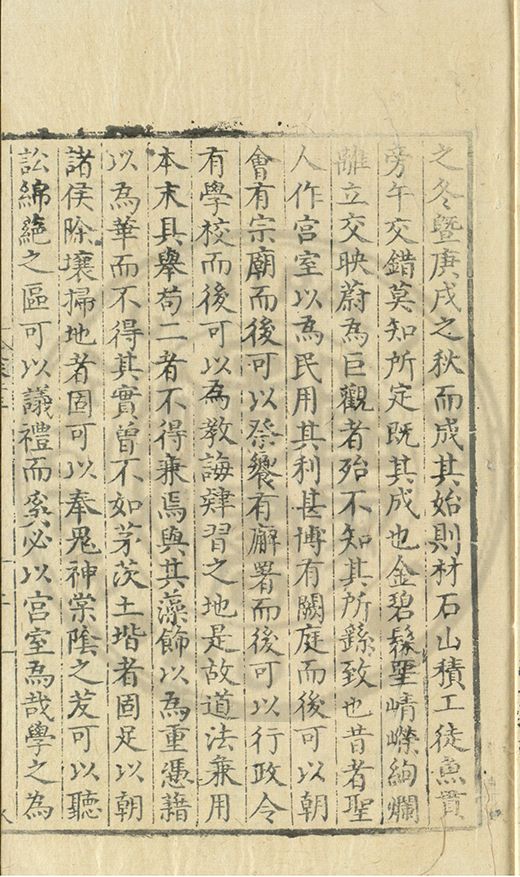 之冬暨庚戌之秋而成其始則材石山積工徒魚貫
旁午交錯莫知所定既其成也金碧髹堊崝嶸絢爛
離立交映蔚為巨觀者殆不知其所繇致也昔者聖
人作宫室以為民用其利甚博有闕庭而後可以朝
會有宗廟而後可以祭饗有廨署而後可以行政令
有學校而後可以為教誨肄習之地是故道法兼用
本末具舉苟二者不得兼焉與其藻飾以為重憑藉
以為華而不得其實曾不如茅茨土堦者固足以朝
諸侯除壤掃地者固可以奉鬼神棠陰之茇可以聽
訟綿蕝之區可以議禮而奚必以宫室為哉學之為